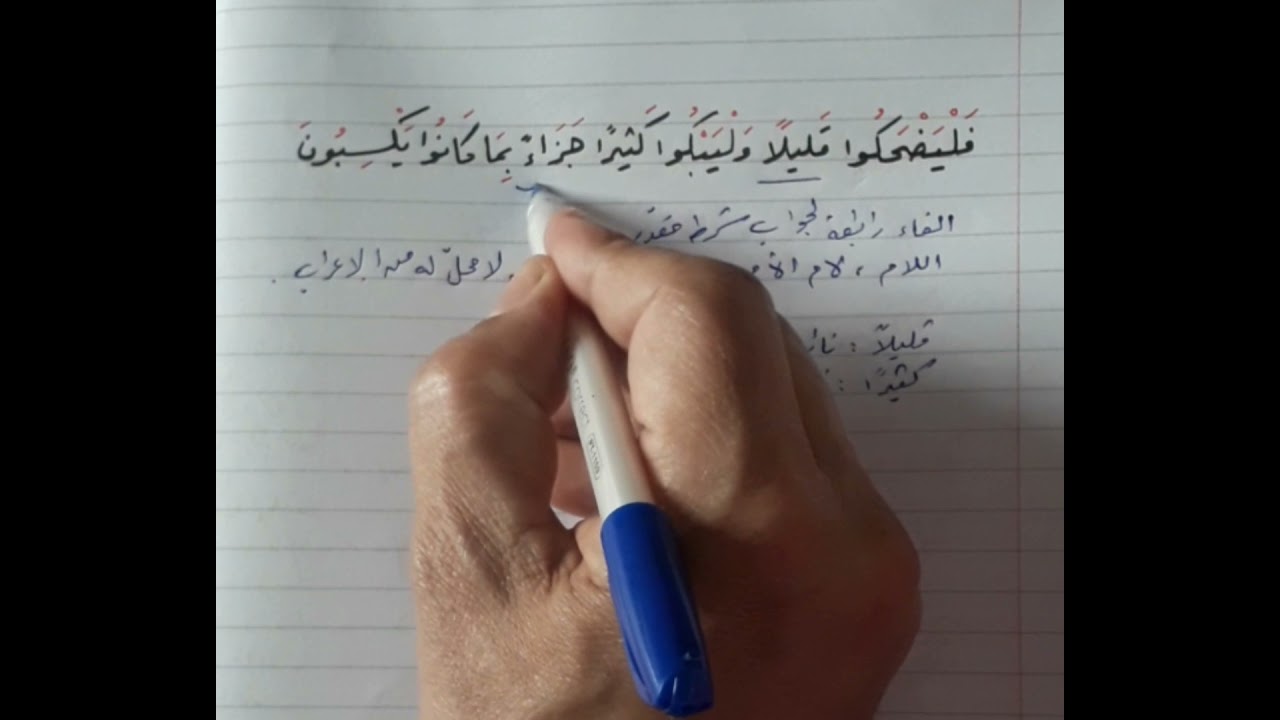 فَلْيَضْحَكُوا قَلِيلًا وَلْيَبْكُوا كَثِيرًا جَزَاءً بِمَا كَانُوا يَكْسِبُونَ
الفاء رابطة لجواب شرط مقدر
اللام ، لام الأم لا محلّ له من الاعراب .
قليلاً :
كثيرًا :